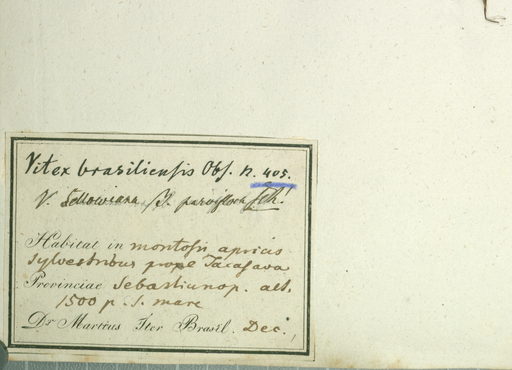 Vitex brasiliensis Obs. n. 405.
V. Sellowiana β. parviflora Sch!
Habitat in montosis apricis
sylvestribus prope Tacasava
Provinciae Sebastianop. alt.
1500 p. s. mare
Dr Martius Iter Brasil. Dec.